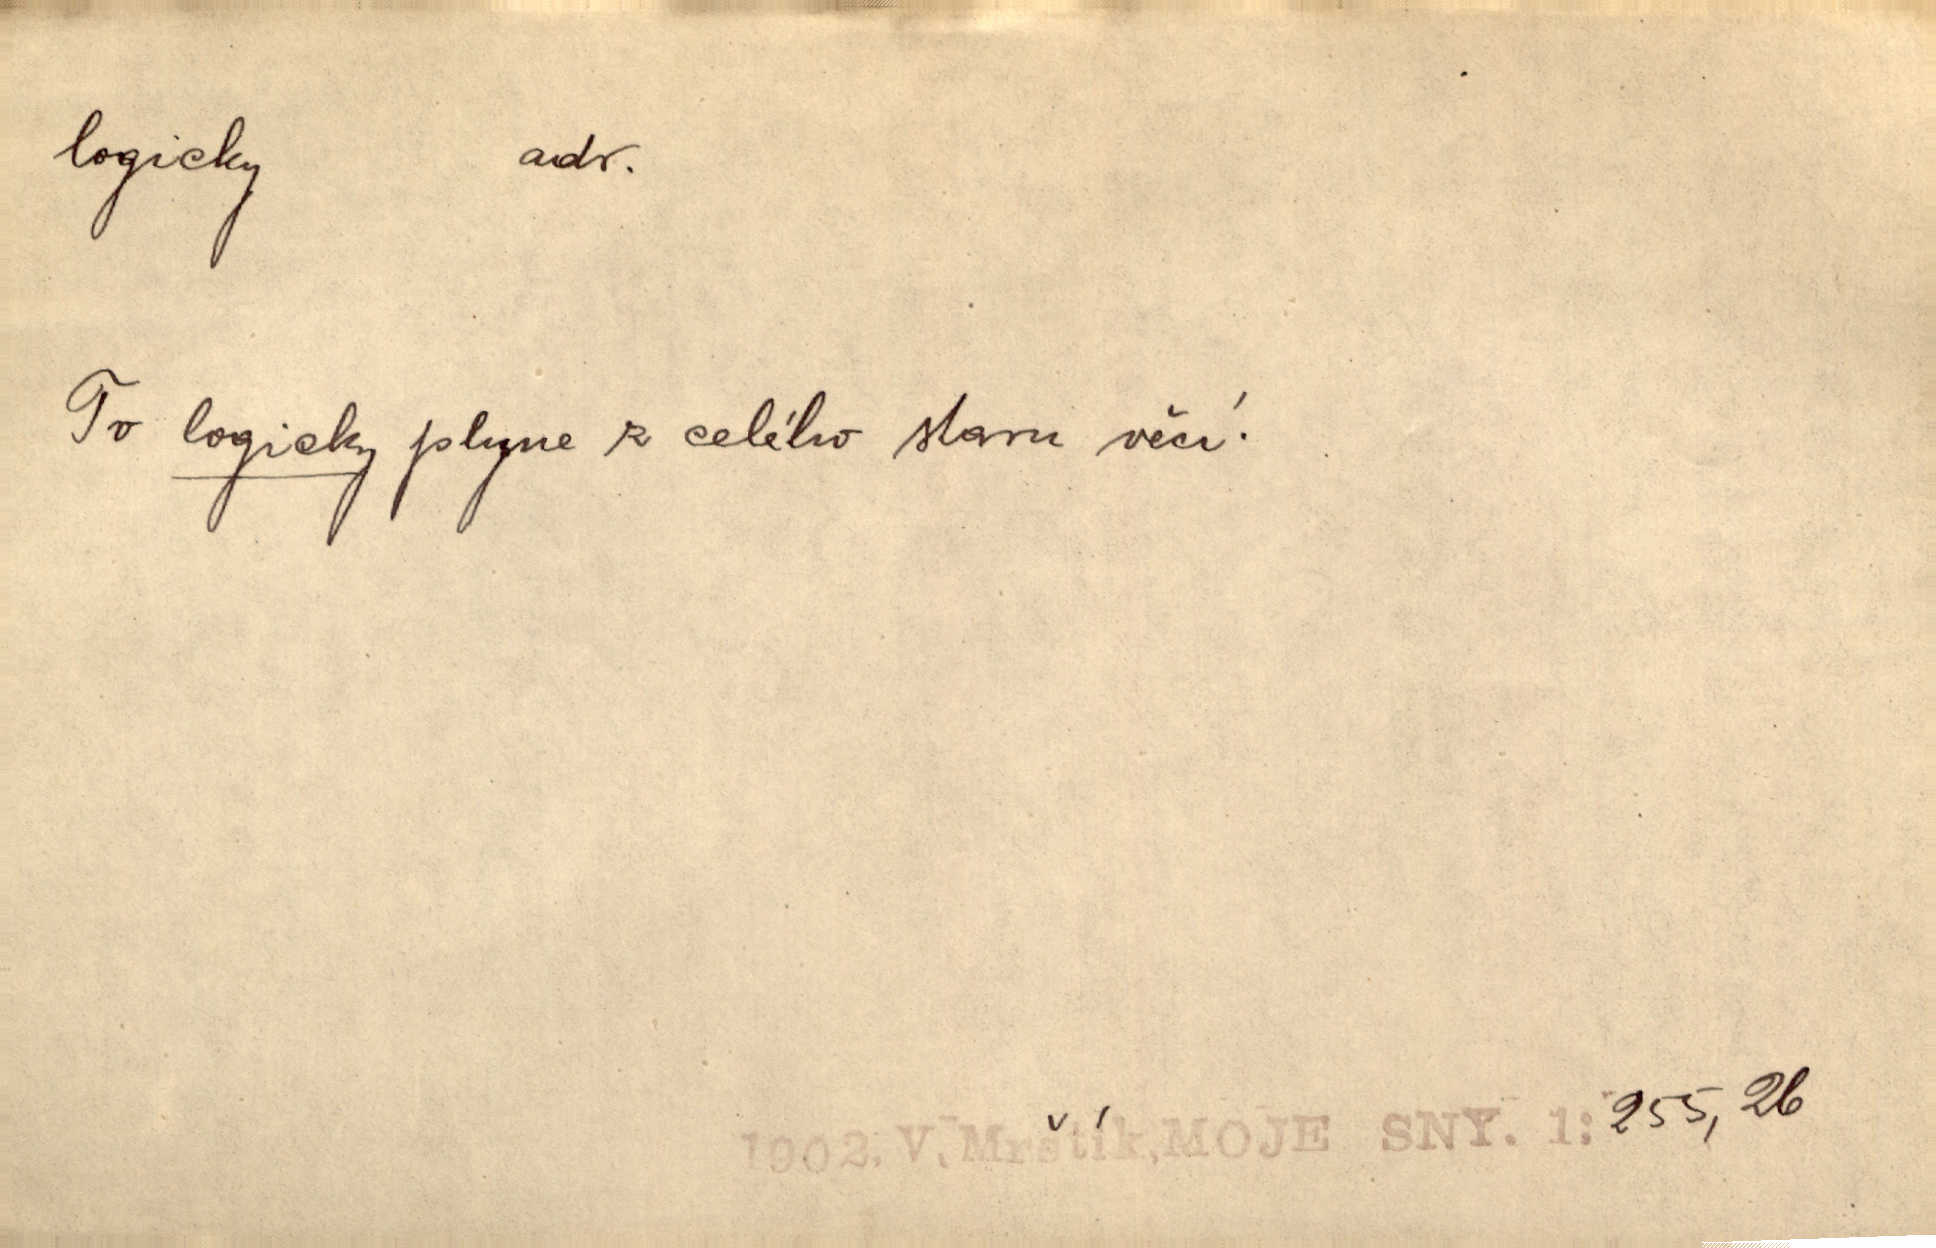 logicky adv.
To logicky plyne z celého stavu věcí.
1902. V. Mrštík, MOJE SNY. 1: 255, 26